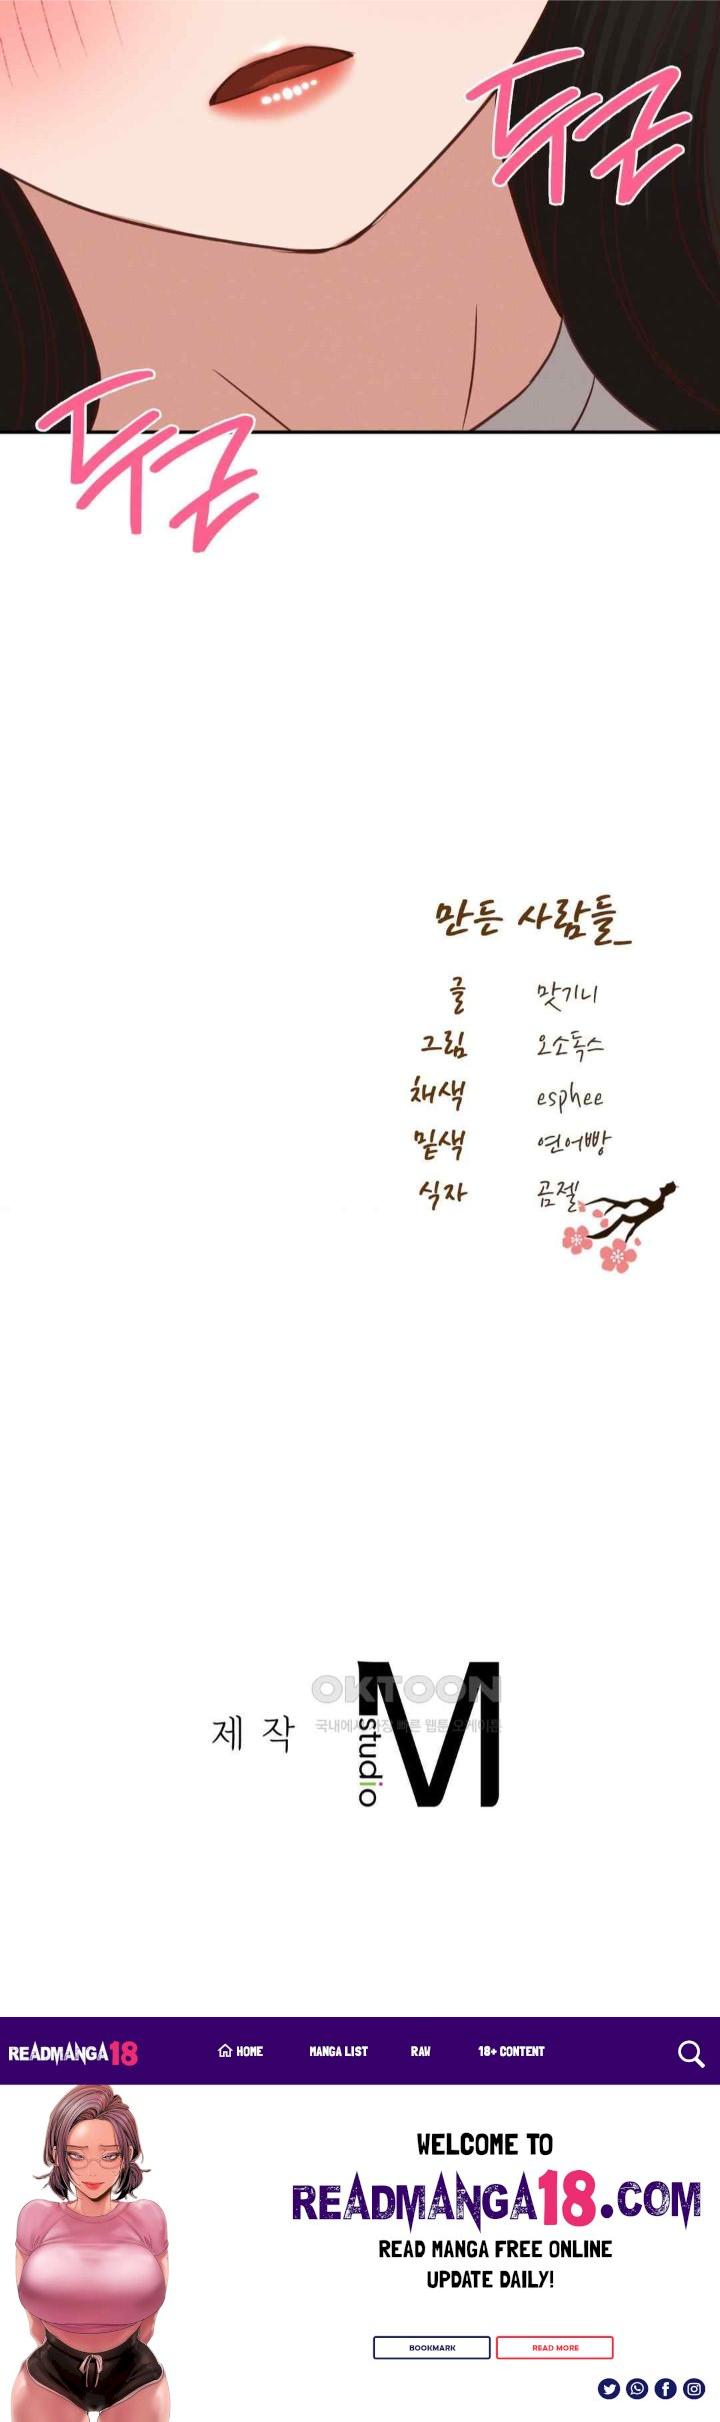 두근
두근
만든 사람들_
글 맛기니
그림 오소독스
채색 esphee
밑색 연어빵
식자 곰젤
OKTOON
국내에서 가장 빠른 웹툰 오케이툰
제작
studio M
READMANGA18
HOME MANGA LIST RAW 18+ CONTENT
WELCOME TO
READMANGA18.COM
READ MANGA FREE ONLINE
UPDATE DAILY!
BOOKMARK READ MORE